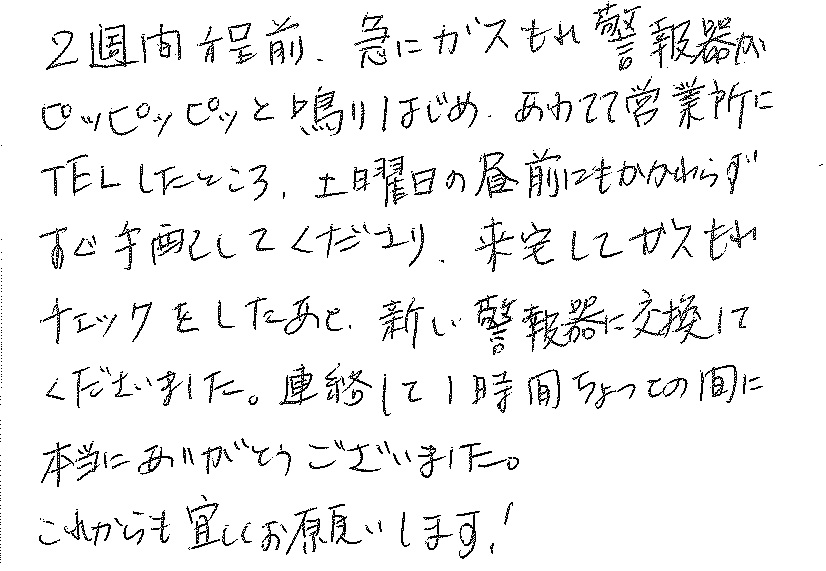 2週間程前、急にガスもれ警報器が
ピッピッピッと鳴りはじめ、あわてて営業所に
TELしたところ、土曜日の昼前にもかかわらず
すぐ手配してくださり、来宅してガスもれ
チェックをしたあと、新しい警報器に交換して
くださいました。連絡して1時間ちょっとの間に
本当にありがとうございました。
これからも宜しくお願いします!